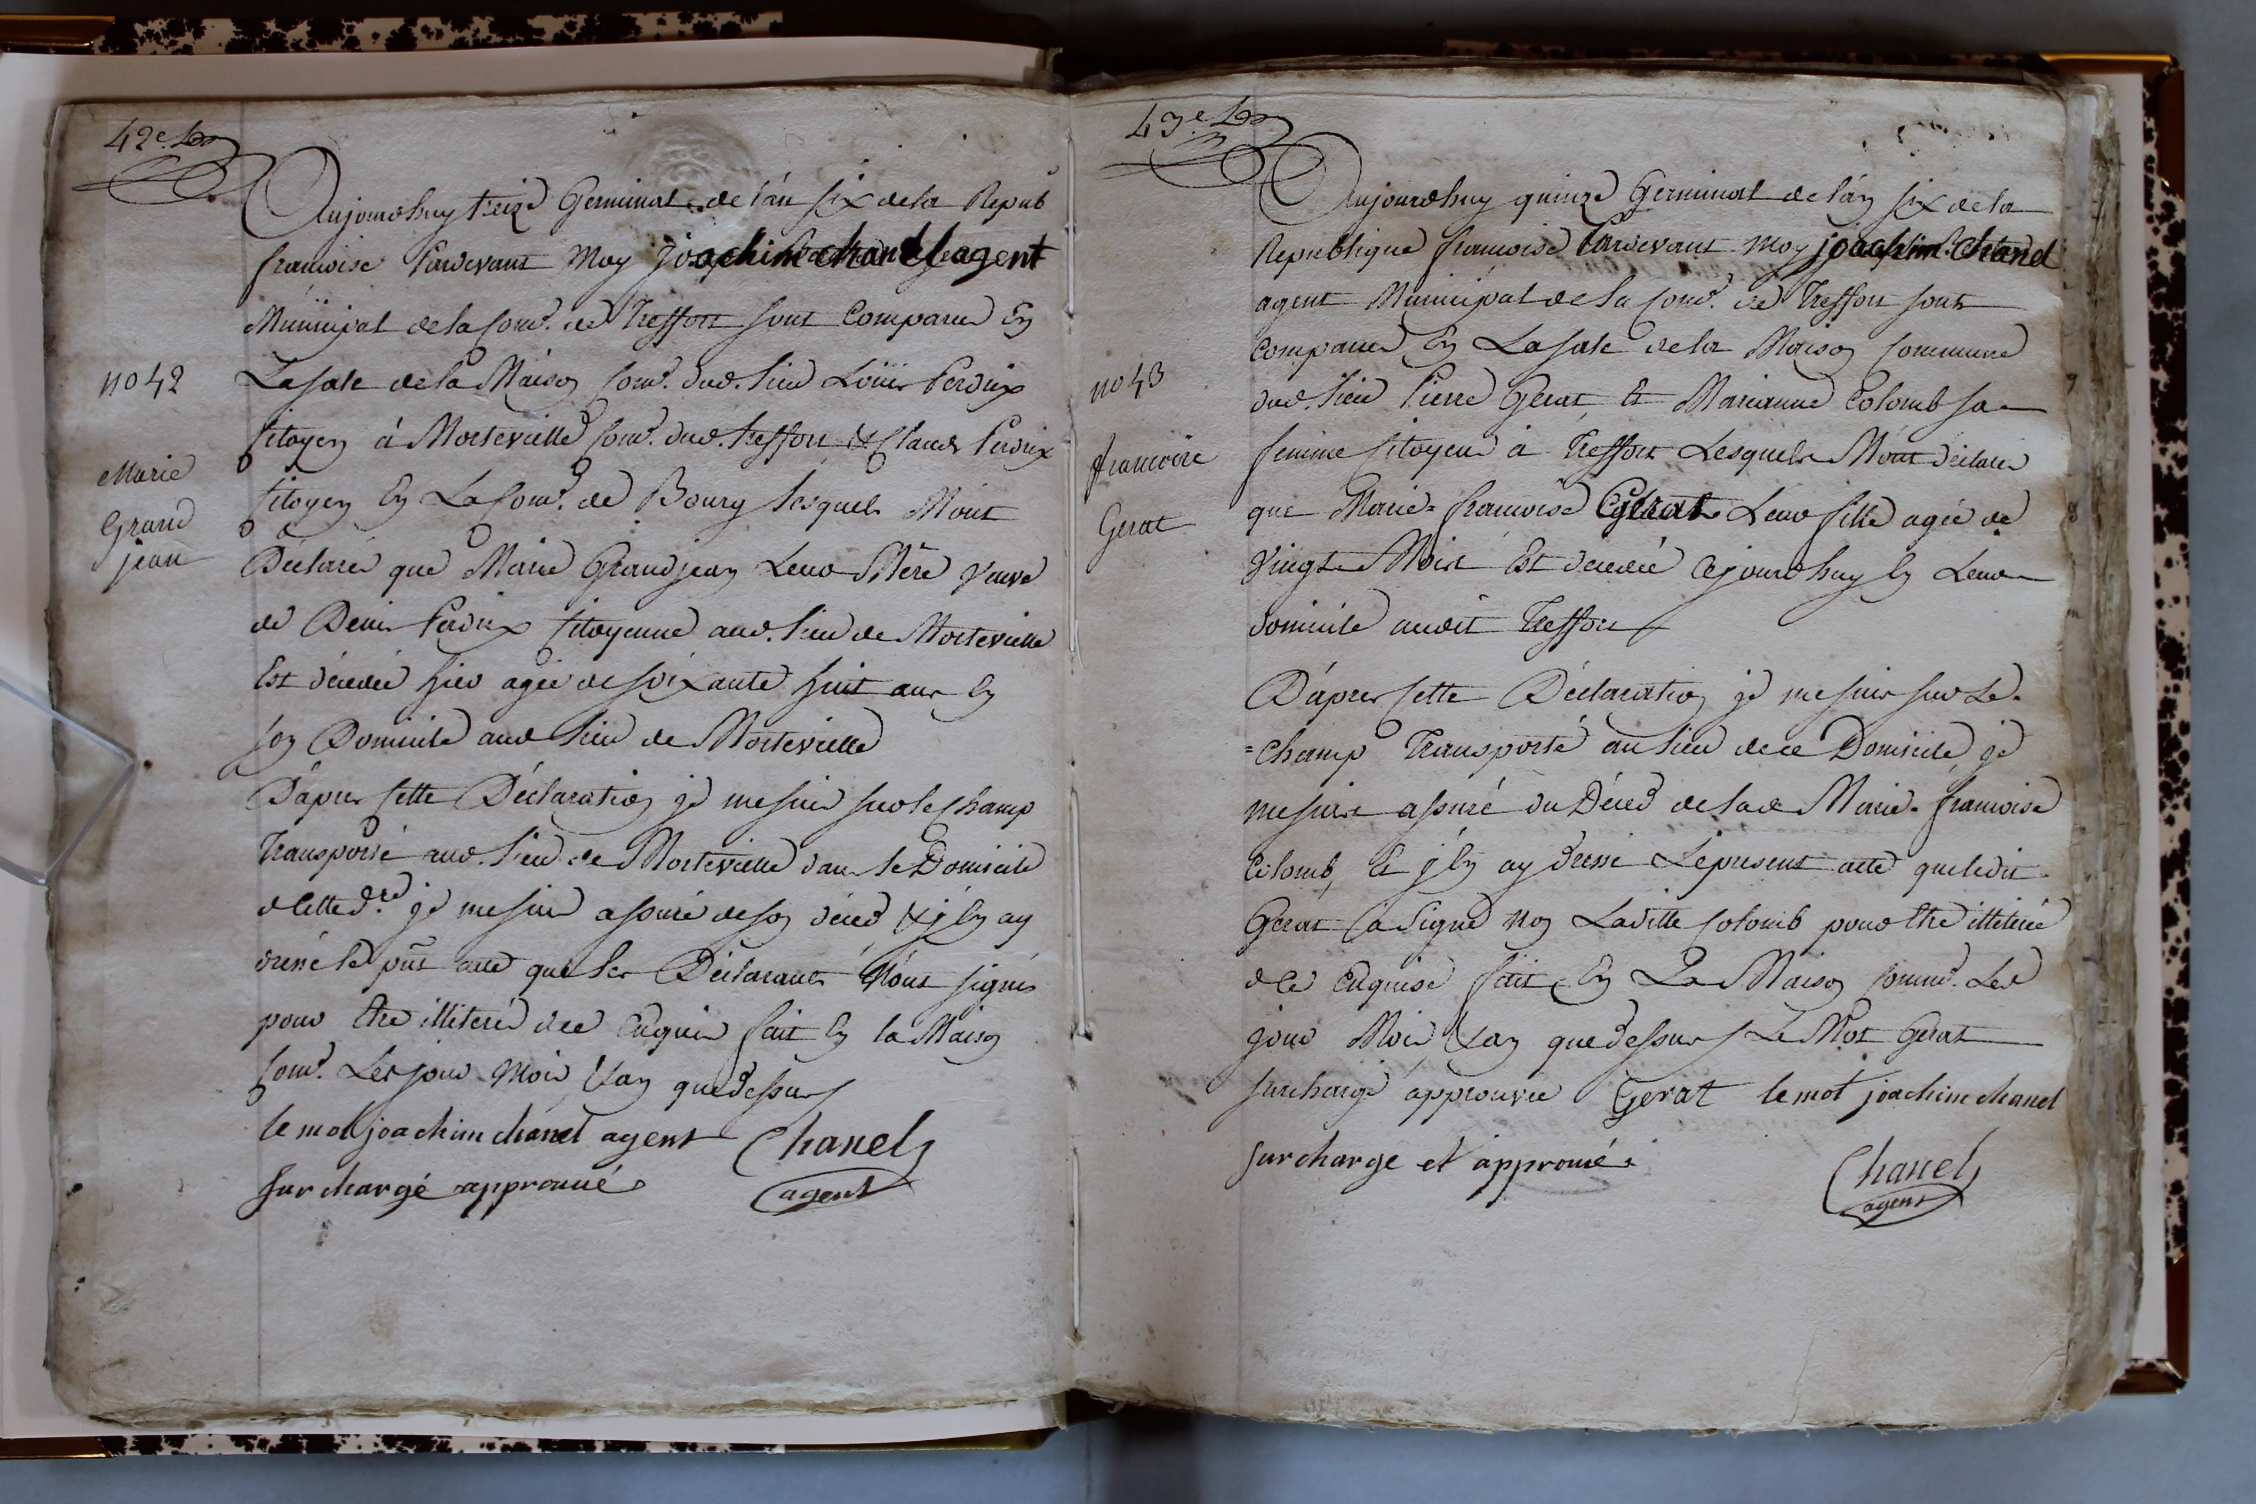 42e.
Aujourdhuy treize Germinal de l'an six de la Repub
francoise Pardevant Moy joachim chanel agent
Municipal de la Come. de Treffort sont Comparus En
La sale de la Maison Come. dud. lieu Loüis Perdrix
no 42
Citoyen à Montevielle Come. dud. treffort, & Claude Perdrix
Marie
Grand
jean
Citoyen En La Come. de Bourg Lesquels M'ont
Déclaré que Marie Grandjean Leur Mère Veuve
de Denis Perdrix Citoyenne aud. lieu de Montevielle
Est décédée hier agée de soixante huit ans En
son Domicile aud lieu de Montevielle
D'après Cette Déclaration je me suis sur le Champ
Transporté aud. lieu de Montevielle dans le Domicile
de Cette d.te je me suis assuré de son décéd & j'En ay
dressé le pnt acte que les Déclarants N'ont signés
pour Etre illiterés de ce Enquis fait En la Maison
Come. Les jour Mois & an que dessus
le mot joachim chanel agent
surchargé approuvé
Chanel
agent
43e.
Aujourdhuy quinze Germinal de l'an six de la
Republique francoise Pardevant Moy joachim Chanel
agent Municipal de la Come. de Treffort sont
Comparus En La sale de la Maison Commune
no 43
dud. lieu Pierre Gerat Et Marianne Colomb sa
francoise
Gerat
femme Citoyens à Treffort Lesquels M'ont déclarés
que Marie-francoise Gerat Leur fille agée de
Vingt Mois Est décédée Cejourdhuy En Leur
domicile audit Treffort
D'après Cette Déclaration je me suis sur Le-
=champ Transporté au lieu de ce Domicile, je
me suis assuré du Décéd de lad Marie-francoise
Colomb, Et j'En ay dressé Le present acte que ledit
Gerat a signé non Laditte Colomb pour Etre illiterée
de Ce Enquise fait En La Maison Comme. Les
jour Mois & an que dessus Le Mot Gerat
surchargé approuvée Gerat le mot joachim chanel
surchargé et approuvé.
Chanel
agent